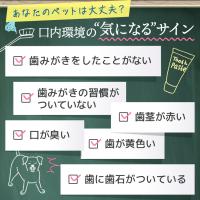 あなたのペットは大丈夫?
口内環境の"気になる"サイン
歯みがきをしたことがない
歯みがきの習慣が
ついていない
歯茎が赤い
口が臭い
歯が黄色い
歯に歯石がついている
Tooth
Paste